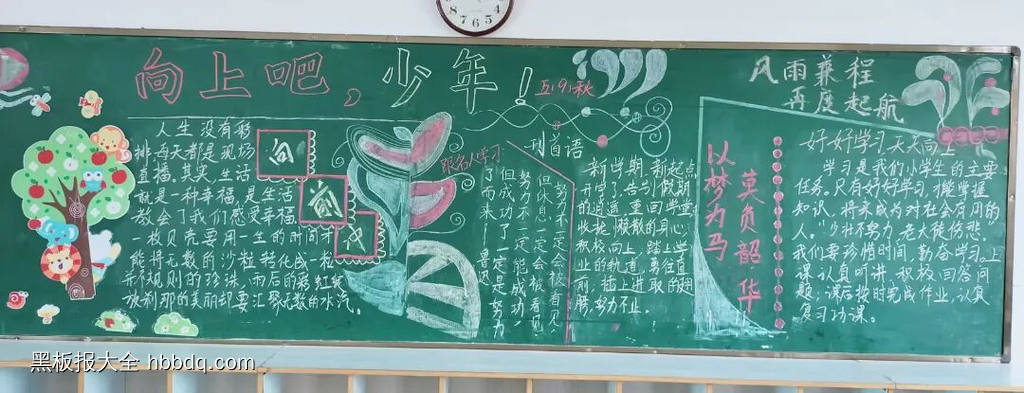 向上吧，少年！
五(9)秋
人生没有彩
排,每天都是现场
直播。其实,生活
就是一种幸福,是生活
教会了我们感受幸福
一枚贝壳要用一生的时间才
能将无数的沙粒转化成一粒
并不规则的珍珠,雨后的彩虹
放刹那的美丽却要汇聚无数的水汽。
向
前
跟名人学习
努力不一定会被看见
但休息一定会被看见
努力不一定能成功
但成功了一定是努力
了而来
刊首语
新学期,新起点
开学了,告别假期
的逍遥,重回学堂
收拢懒散的身心,
积极向上,踏上学
业的轨道,勇往直
前,插上进取的翅
膀,努力不止。
以梦为马
莫负韶华
风雨兼程
再度起航
好好学习天天向上
学习是我们小学生的主要
任务。只有好好学习,才能掌握
知识,将来成为对社会有用的
人。少壮不努力,老大徒伤悲。
我们要珍惜时间,勤奋学习。上
课认真听讲,积极回答问
题；课后按时完成作业,认真
复习功课。
黑板报大全 hbbdq.com